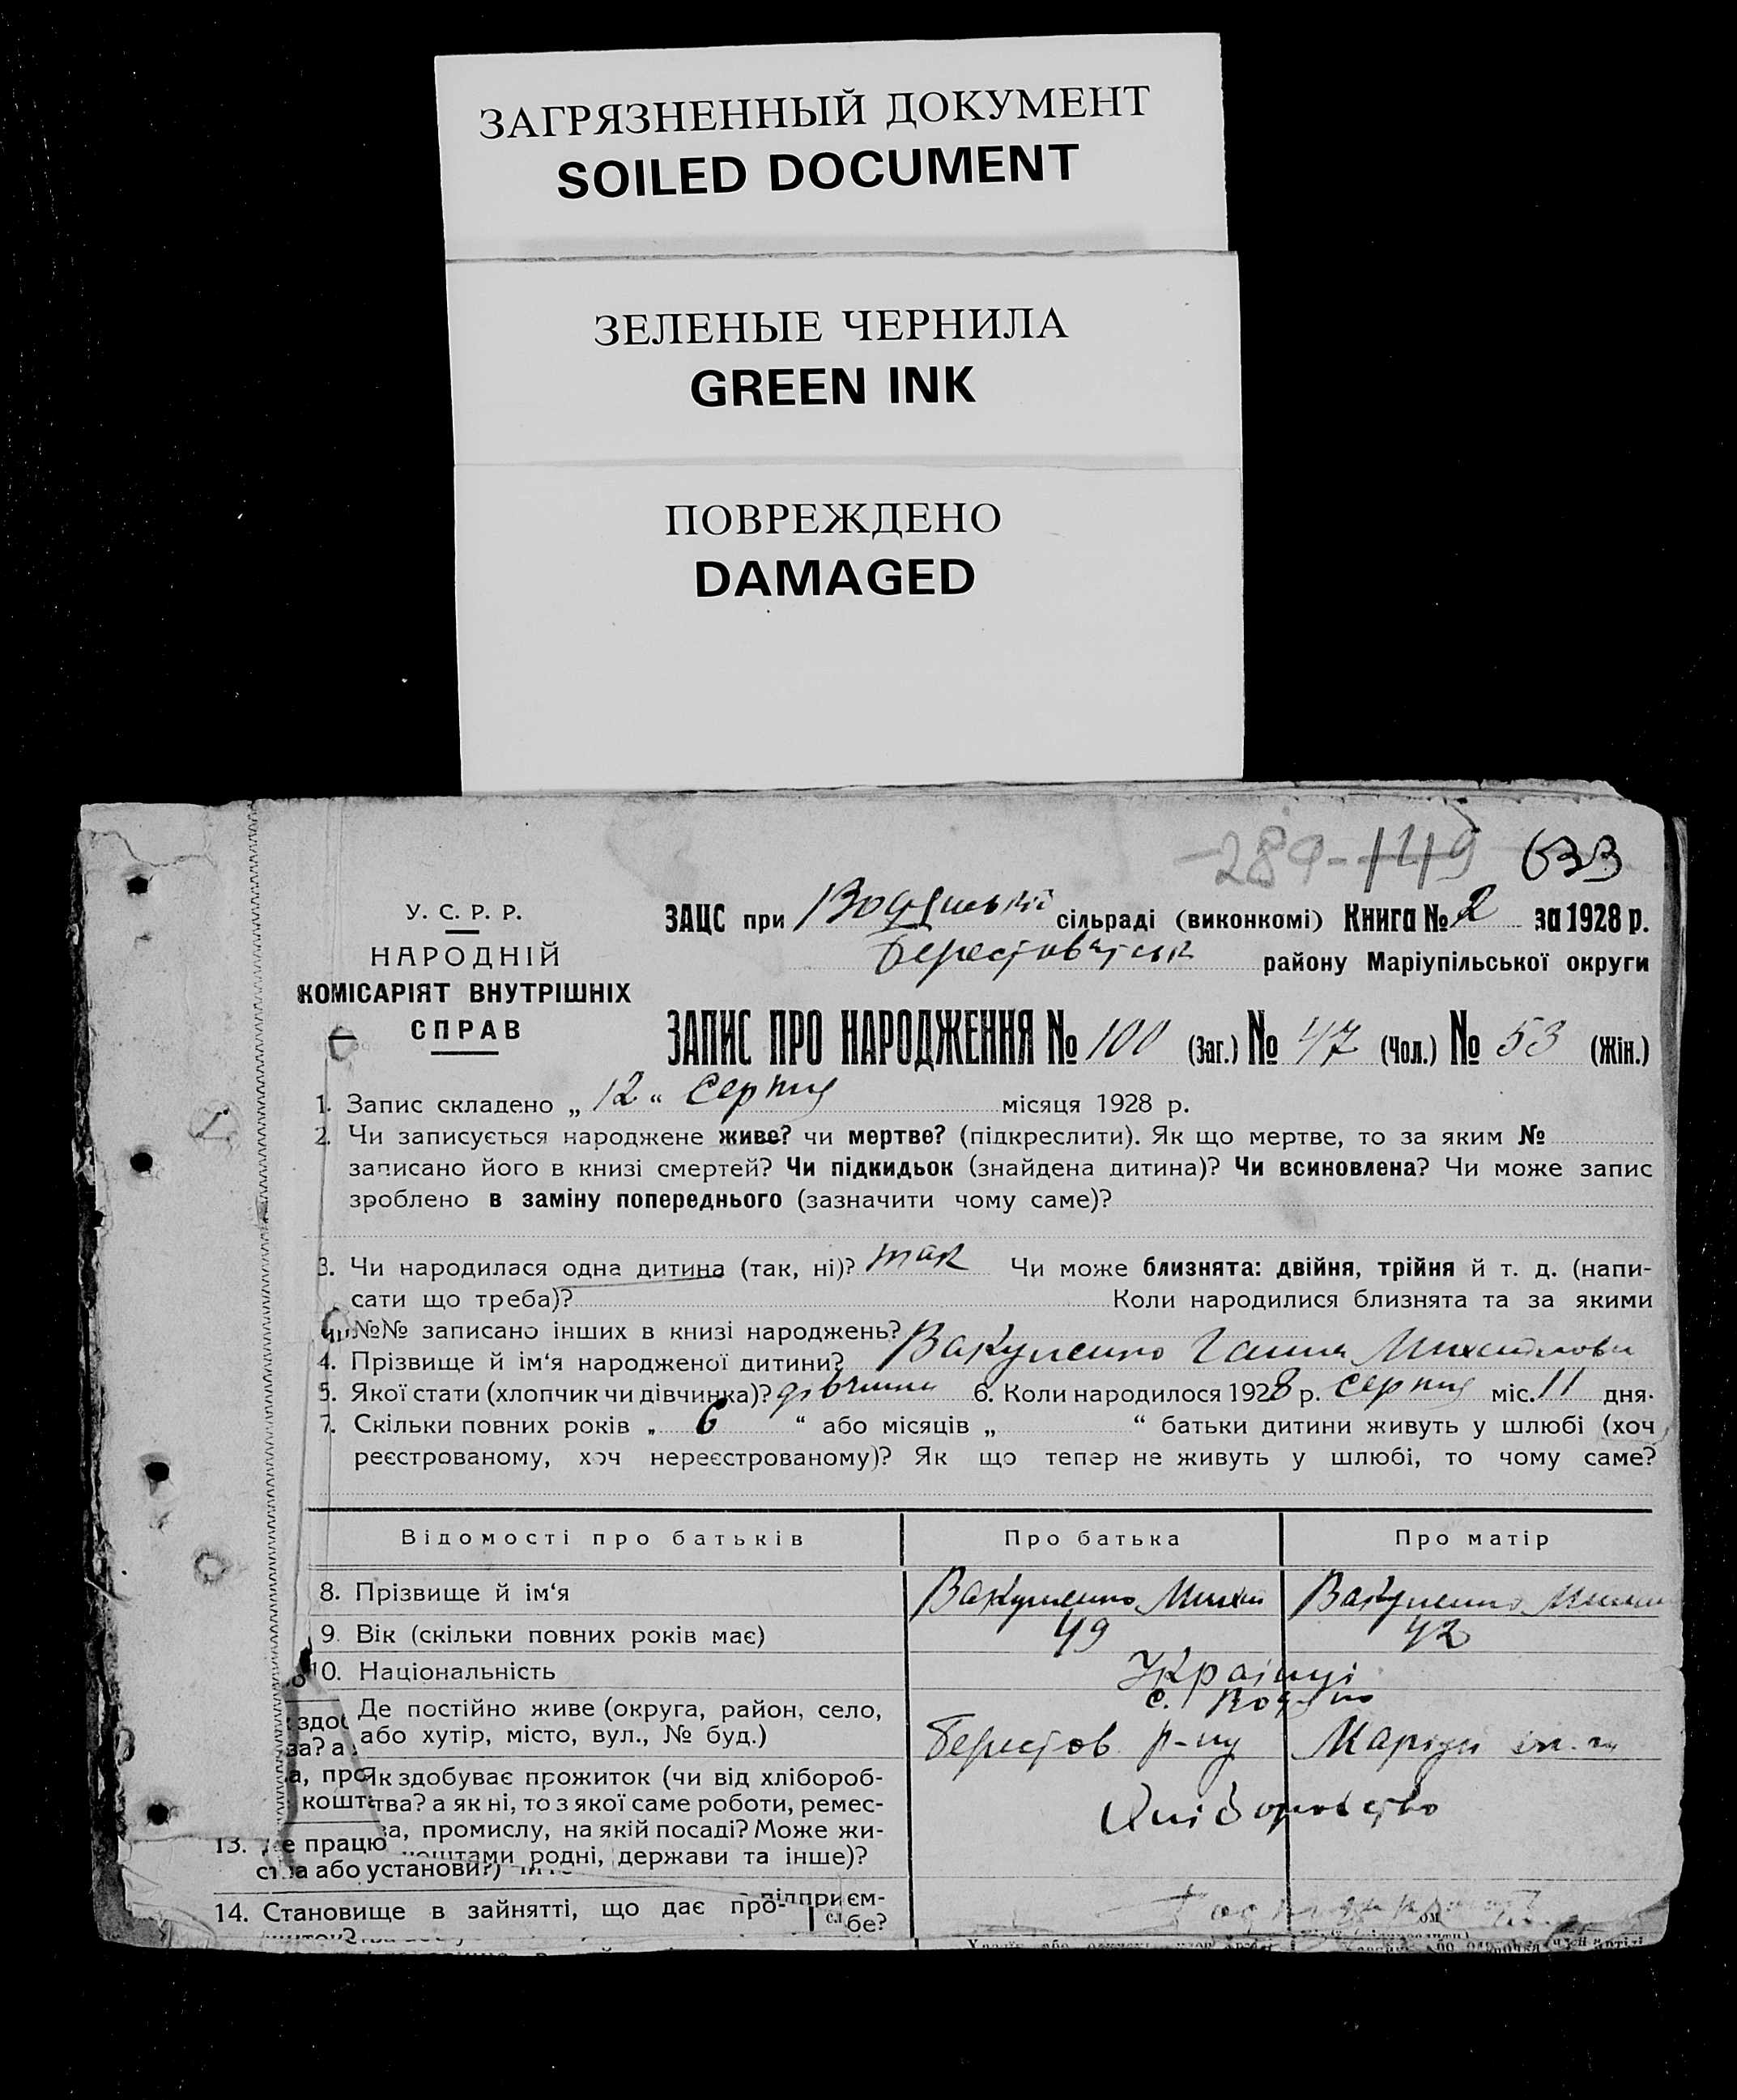 ЗАГРЯЗНЕННЫЙ ДОКУМЕНТ
SOILED DOCUMENT
ЗЕЛЕНЫЕ ЧЕРНИЛА
GREEN INK
ПОВРЕЖДЕНО
DAMAGED
289-149 633
У. С. Р. Р.
НАРОДНІЙ
КОМІСАРІЯТ ВНУТРІШНІХ
СПРАВ
ЗАЦС при сільраді (виконкомі) Книга № 2 за 1928 р.
району Маріупільської округи
ЗАПИС ПРО НАРОДЖЕННЯ № 100 (Заг.) № 47 (Чол.) № 53 (Жін.)
1. Запис складено „ 12 “ серпня місяця 1928 р.
2. Чи записується народжене живе? чи мертве? (підкреслити). Як що мертве, то за яким №
записано його в книзі смертей? Чи підкидьок (знайдена дитина)? Чи всиновлена? Чи може запис
зроблено в заміну попереднього (зазначити чому саме)?
3. Чи народилася одна дитина (так, ні)? так Чи може близнята: двійня, трійня й т. д. (напи-
сати що треба)? Коли народилися близнята та за якими
№№ записано інших в книзі народжень?
4. Прізвище й ім‘я народженої дитини? Вакуленко Ганна Михайлова
5. Якої стати (хлопчик чи дівчинка)? дівчина 6. Коли народилося 1928 р. серпня міс. 11 дня.
7. Скільки повних років „ 6 “ або місяців „ “ батьки дитини живуть у шлюбі (хоч
реєстрованому, хоч нереєстрованому)? Як що тепер не живуть у шлюбі, то чому саме?
Відомості про батьків Про батька Про матір
8. Прізвище й ім‘я Вакуленко Вакуленко
9. Вік (скільки повних років має) 49 42
10. Національність Українці
Де постійно живе (округа, район, село,
або хутір, місто, вул., № буд.) Берестов р-ну
Як здобуває прожиток (чи від хлібороб-
ства? а як ні, то з якої саме роботи, ремес-
ва, промислу, на якій посаді? Може жи-
коштами родні, держави та інше)?
Хліборобство
13. е працю
ства або установи?)
підприєм-
14. Становище в зайнятті, що дає про-
бе?